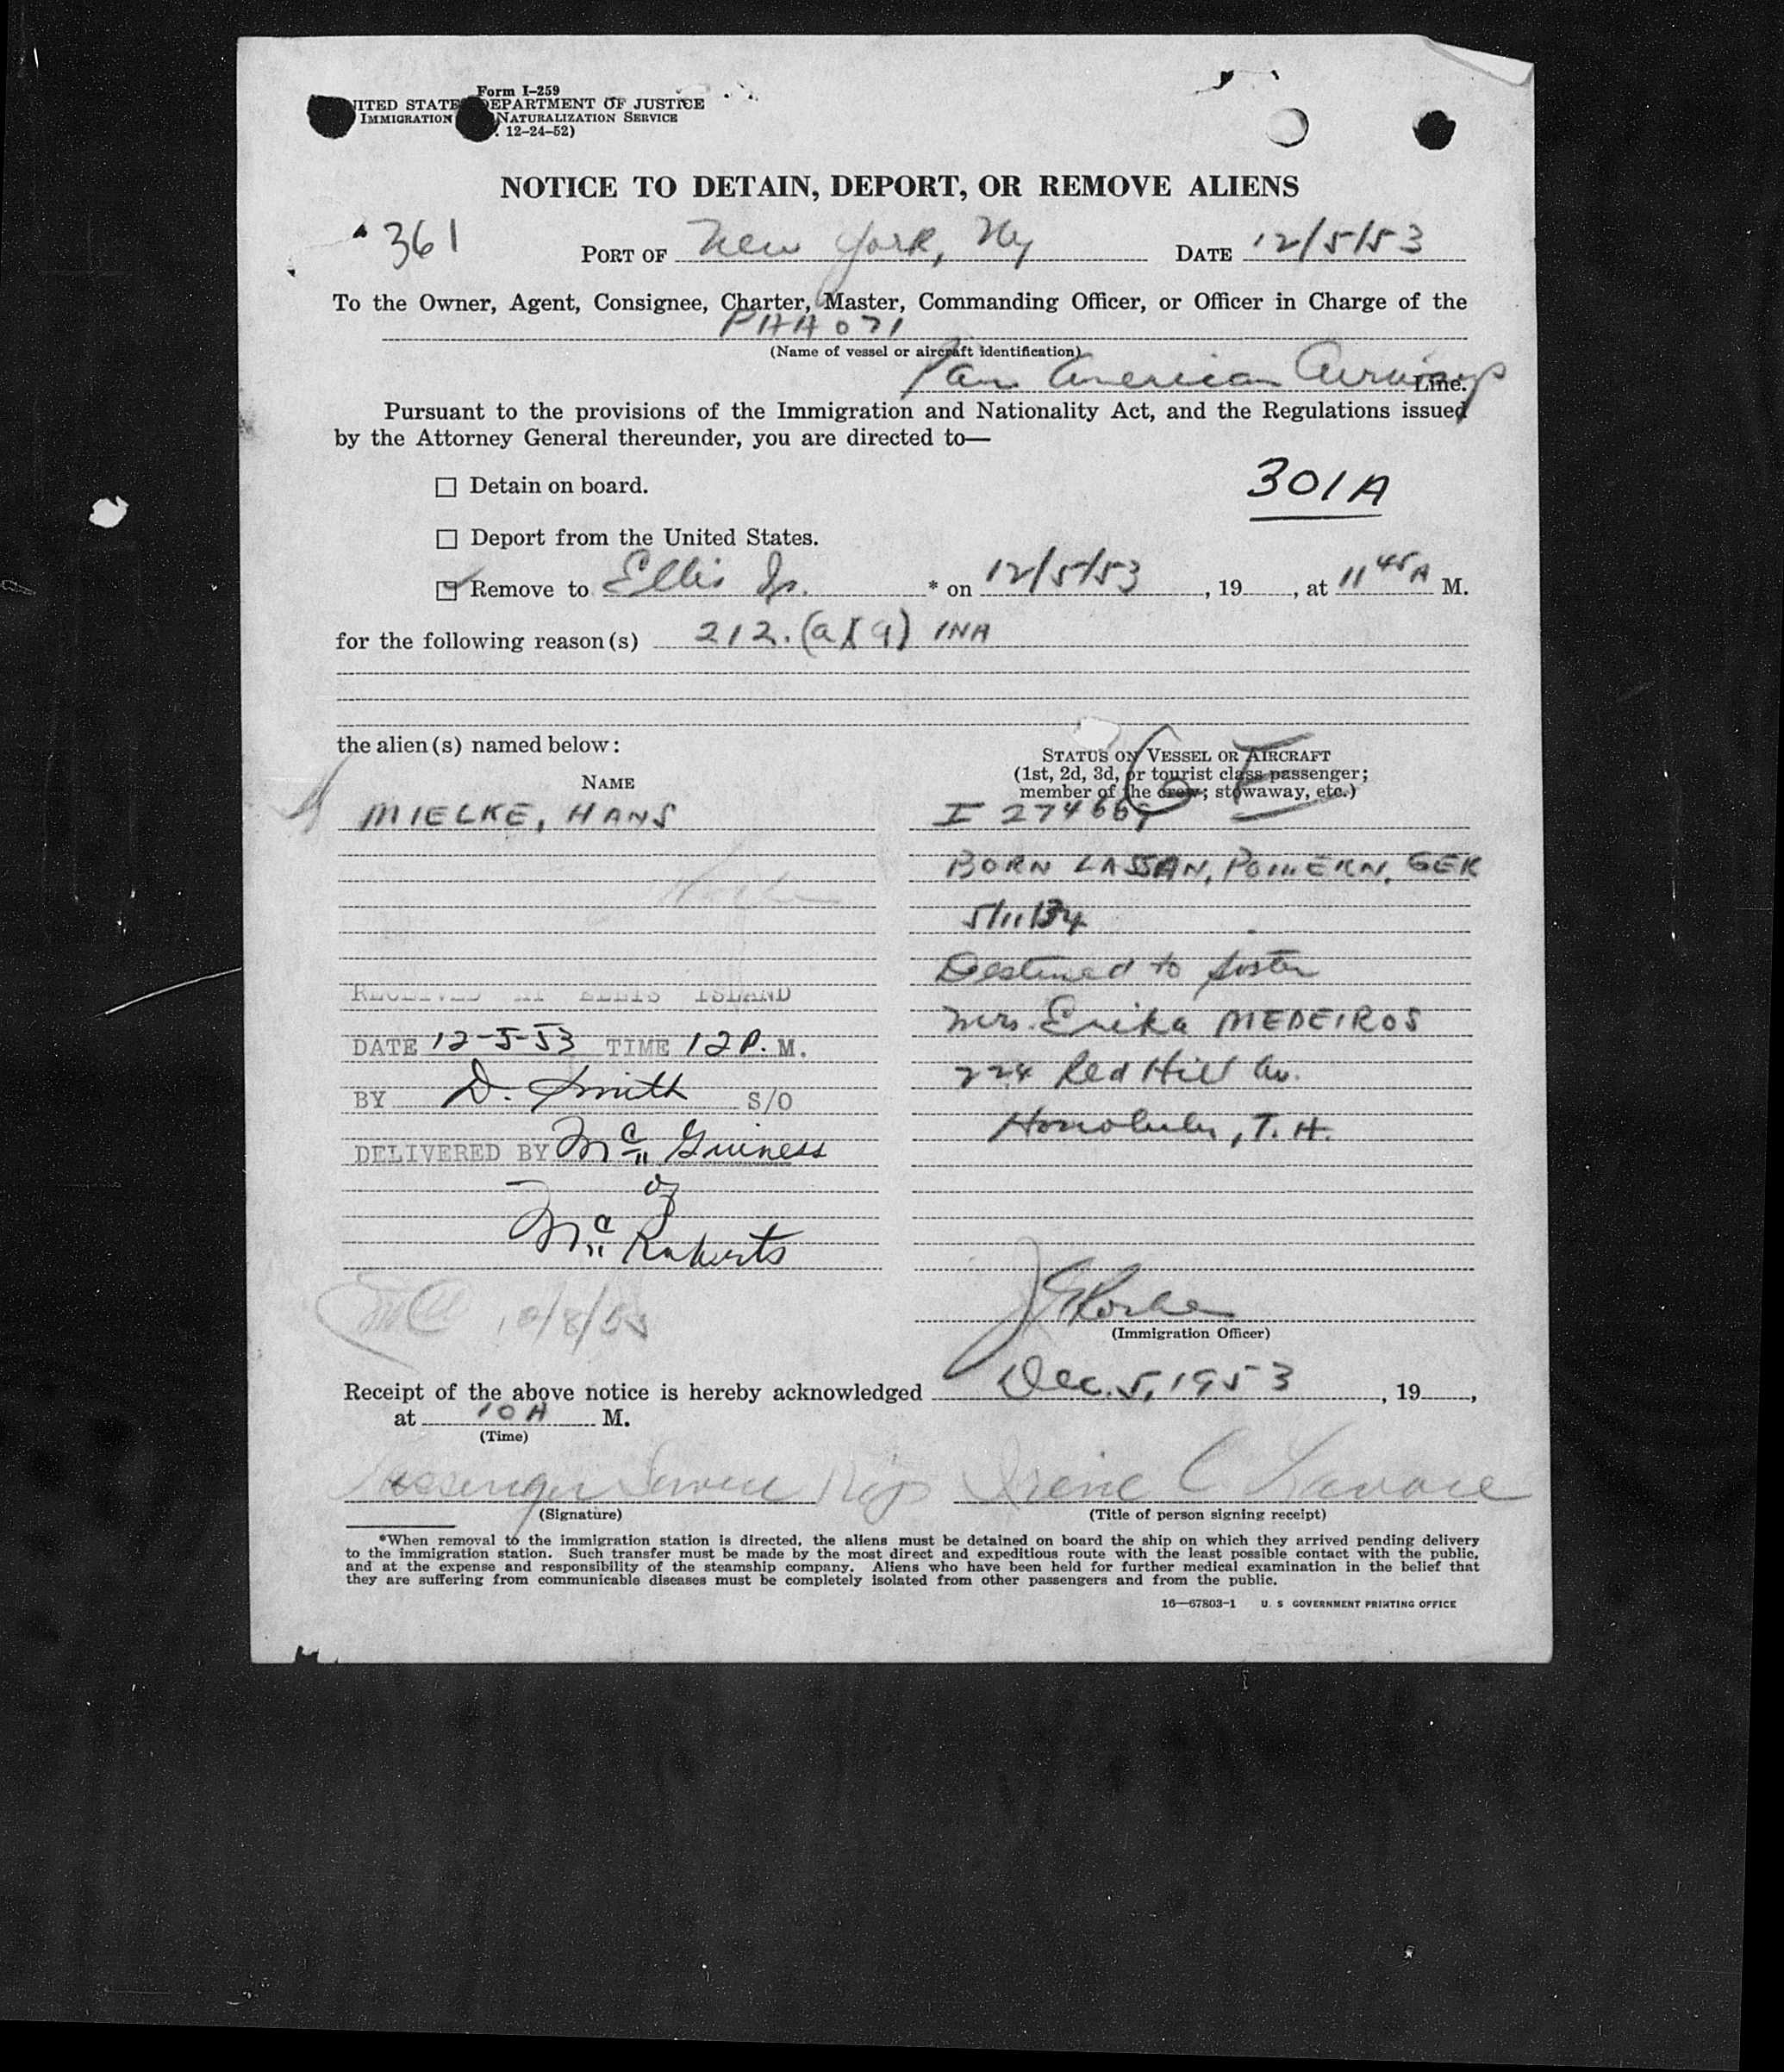 Form I-259
UNITED STATES DEPARTMENT OF JUSTICE
IMMIGRATION NATURALIZATION SERVICE
12-24-52)
NOTICE TO DETAIN, DEPORT, OR REMOVE ALIENS
361 PORT OF New York, Ny DATE 12/5/53
To the Owner, Agent, Consignee, Charter, Master, Commanding Officer, or Officer in Charge of the
PAA 071
(Name of vessel or aircraft identification)
Pan American Airways Line.
Pursuant to the provisions of the Immigration and Nationality Act, and the Regulations issued
by the Attorney General thereunder, you are directed to—
301A
☐ Detain on board.
☐ Deport from the United States.
☑ Remove to Ellis Is. * on 12/5/53, 19......, at 11 45 A M.
for the following reason(s) 212.(a)(9) INA
the alien(s) named below:
STATUS ON VESSEL OR AIRCRAFT
(1st, 2d, 3d, or tourist class passenger;
member of the crew; stowaway, etc.)
NAME
MIELKE, HANS
I 274669
BORN LASSAN, POMMERN, GER
5/11/34
Destined to sister
Mrs. Erika MEDEIROS
224 Red Hill Av.
Honolulu, T. H.
RECEIVED AT ELLIS ISLAND
DATE 12-5-53 TIME 12 P. M.
BY D. Smith S/O
DELIVERED BY Mc Guiness
of
Mc Roberts
(Immigration Officer)
Receipt of the above notice is hereby acknowledged Dec. 5, 1953, 19......,
at 10 A M.
(Time)
Passenger Service Rep Irene C.
(Signature)
(Title of person signing receipt)
*When removal to the immigration station is directed, the aliens must be detained on board the ship on which they arrived pending delivery
to the immigration station. Such transfer must be made by the most direct and expeditious route with the least possible contact with the public,
and at the expense and responsibility of the steamship company. Aliens who have been held for further medical examination in the belief that
they are suffering from communicable diseases must be completely isolated from other passengers and from the public.
16—67803-1 U. S GOVERNMENT PRINTING OFFICE